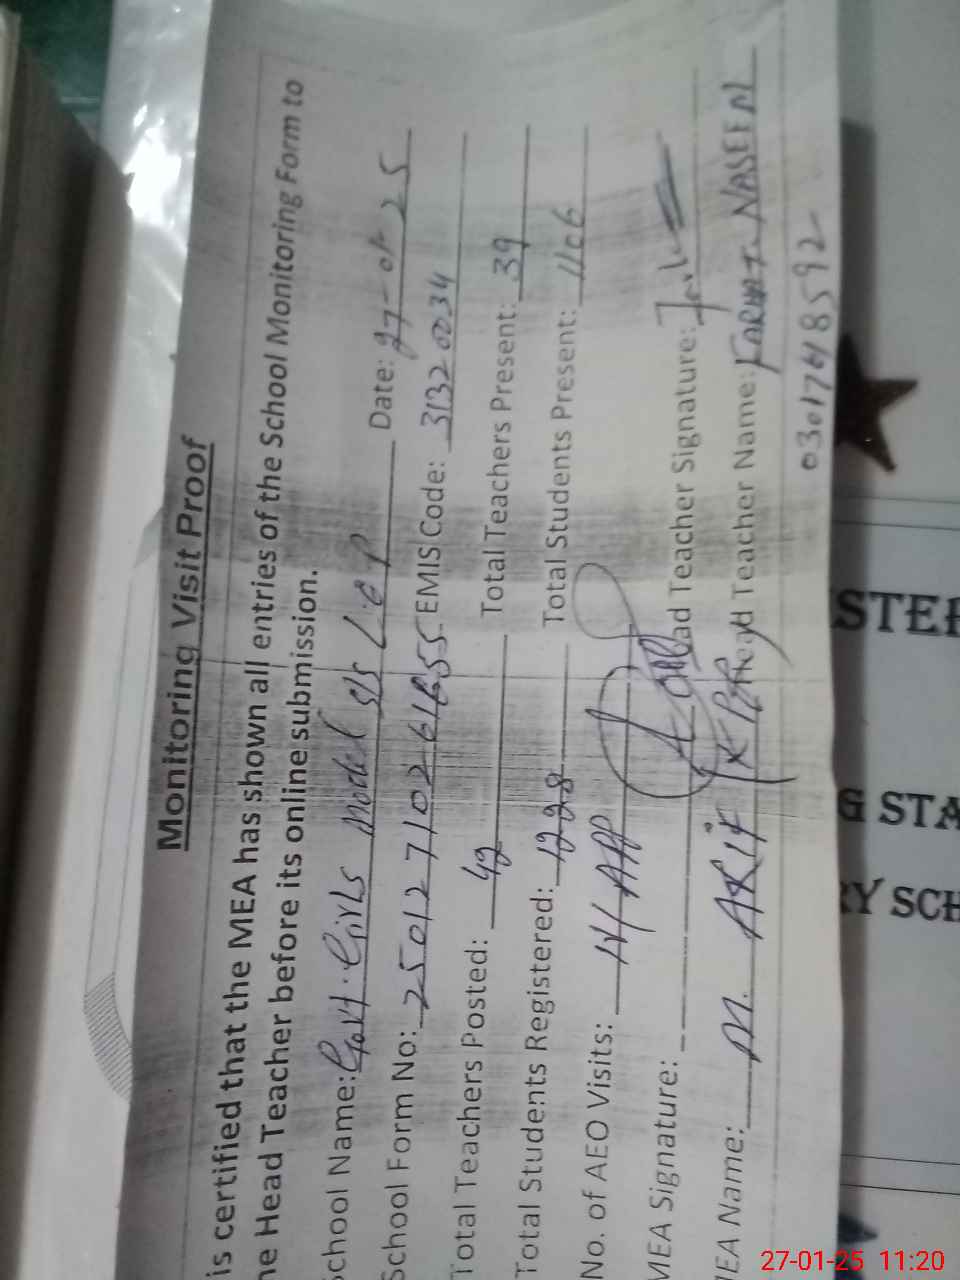 Monitoring Visit Proof
is certified that the MEA has shown all entries of the School Monitoring Form to
he Head Teacher before its online submission.
School Name: Govt. Girls Model S/S Date: 27-01-25
School Form No: 25012710261655 EMIS Code: 31320034
Total Teachers Posted: 42 Total Teachers Present: 39
Total Students Registered: 1228 Total Students Present: 1106
No. of AEO Visits: N/APP
MEA Signature: ead Teacher Signature:
MEA Name: M. ARIF Head Teacher Name: FARHAT NASEEM
03017618592
STER
G STA
RY SCH
27-01-25 11:20